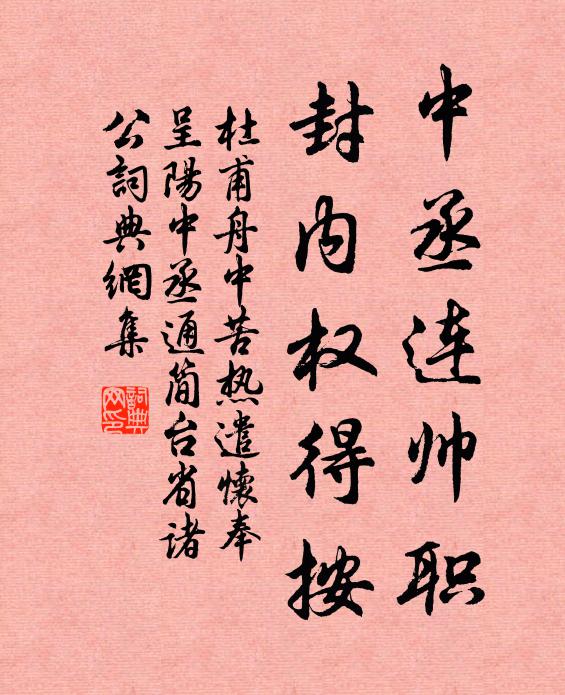 中丞连帅职
封内权得按
杜甫舟中苦热遣懷奉
呈陽中丞通简台省诸
公詞典網集
詞典
网印